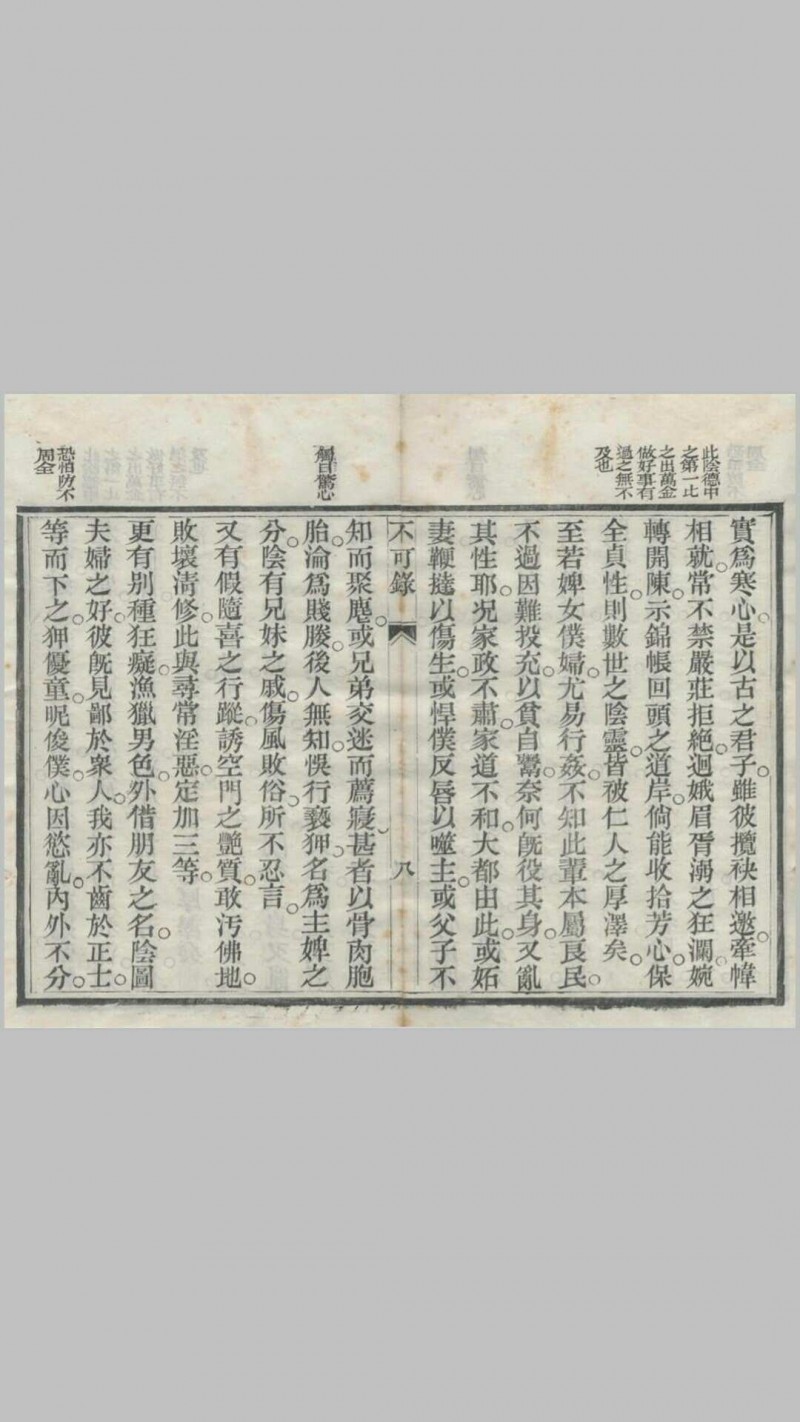 此陰德中
之第一比
之出萬金
做好事有
過之無不
及也
實爲寒心。是以古之君子。雖彼攬袂相邀。牽幃
相就。常不禁嚴莊拒絶。迴娥眉胥溺之狂瀾。婉
轉開陳。示錦帳回頭之道岸。倘能收拾芳心。保
全貞性。則數世之陰靈。皆被仁人之厚澤矣。
至若婢女僕婦。尤易行姦。不知此輩本屬良民。
不過因難投充。以貧自鬻。奈何既役其身。又亂
其性耶。况家政不肅。家道不和。大都由此。或妬
妻鞭撻以傷生。或悍僕反唇以噬主。或父子不
不可錄
八
觸目驚心
知而聚麀。或兄弟交迷而薦寢。甚者以骨肉胞
胎。淪爲賤媵。後人無知。悞行褻狎。名爲主婢之
分。陰有兄妹之戚。傷風敗俗。所不忍言。
又有假隨喜之行蹤。誘空門之艷質。敢汚佛地。
敗壞清修。此與尋常淫惡。定加三等。
更有别種狂癡。漁獵男色。外借朋友之名。陰圖
夫婦之好。彼既見鄙於衆人。我亦不齒於正士。
等而下之。狎優童。昵俊僕。心因慾亂。內外不分。
恐怕防不
周全